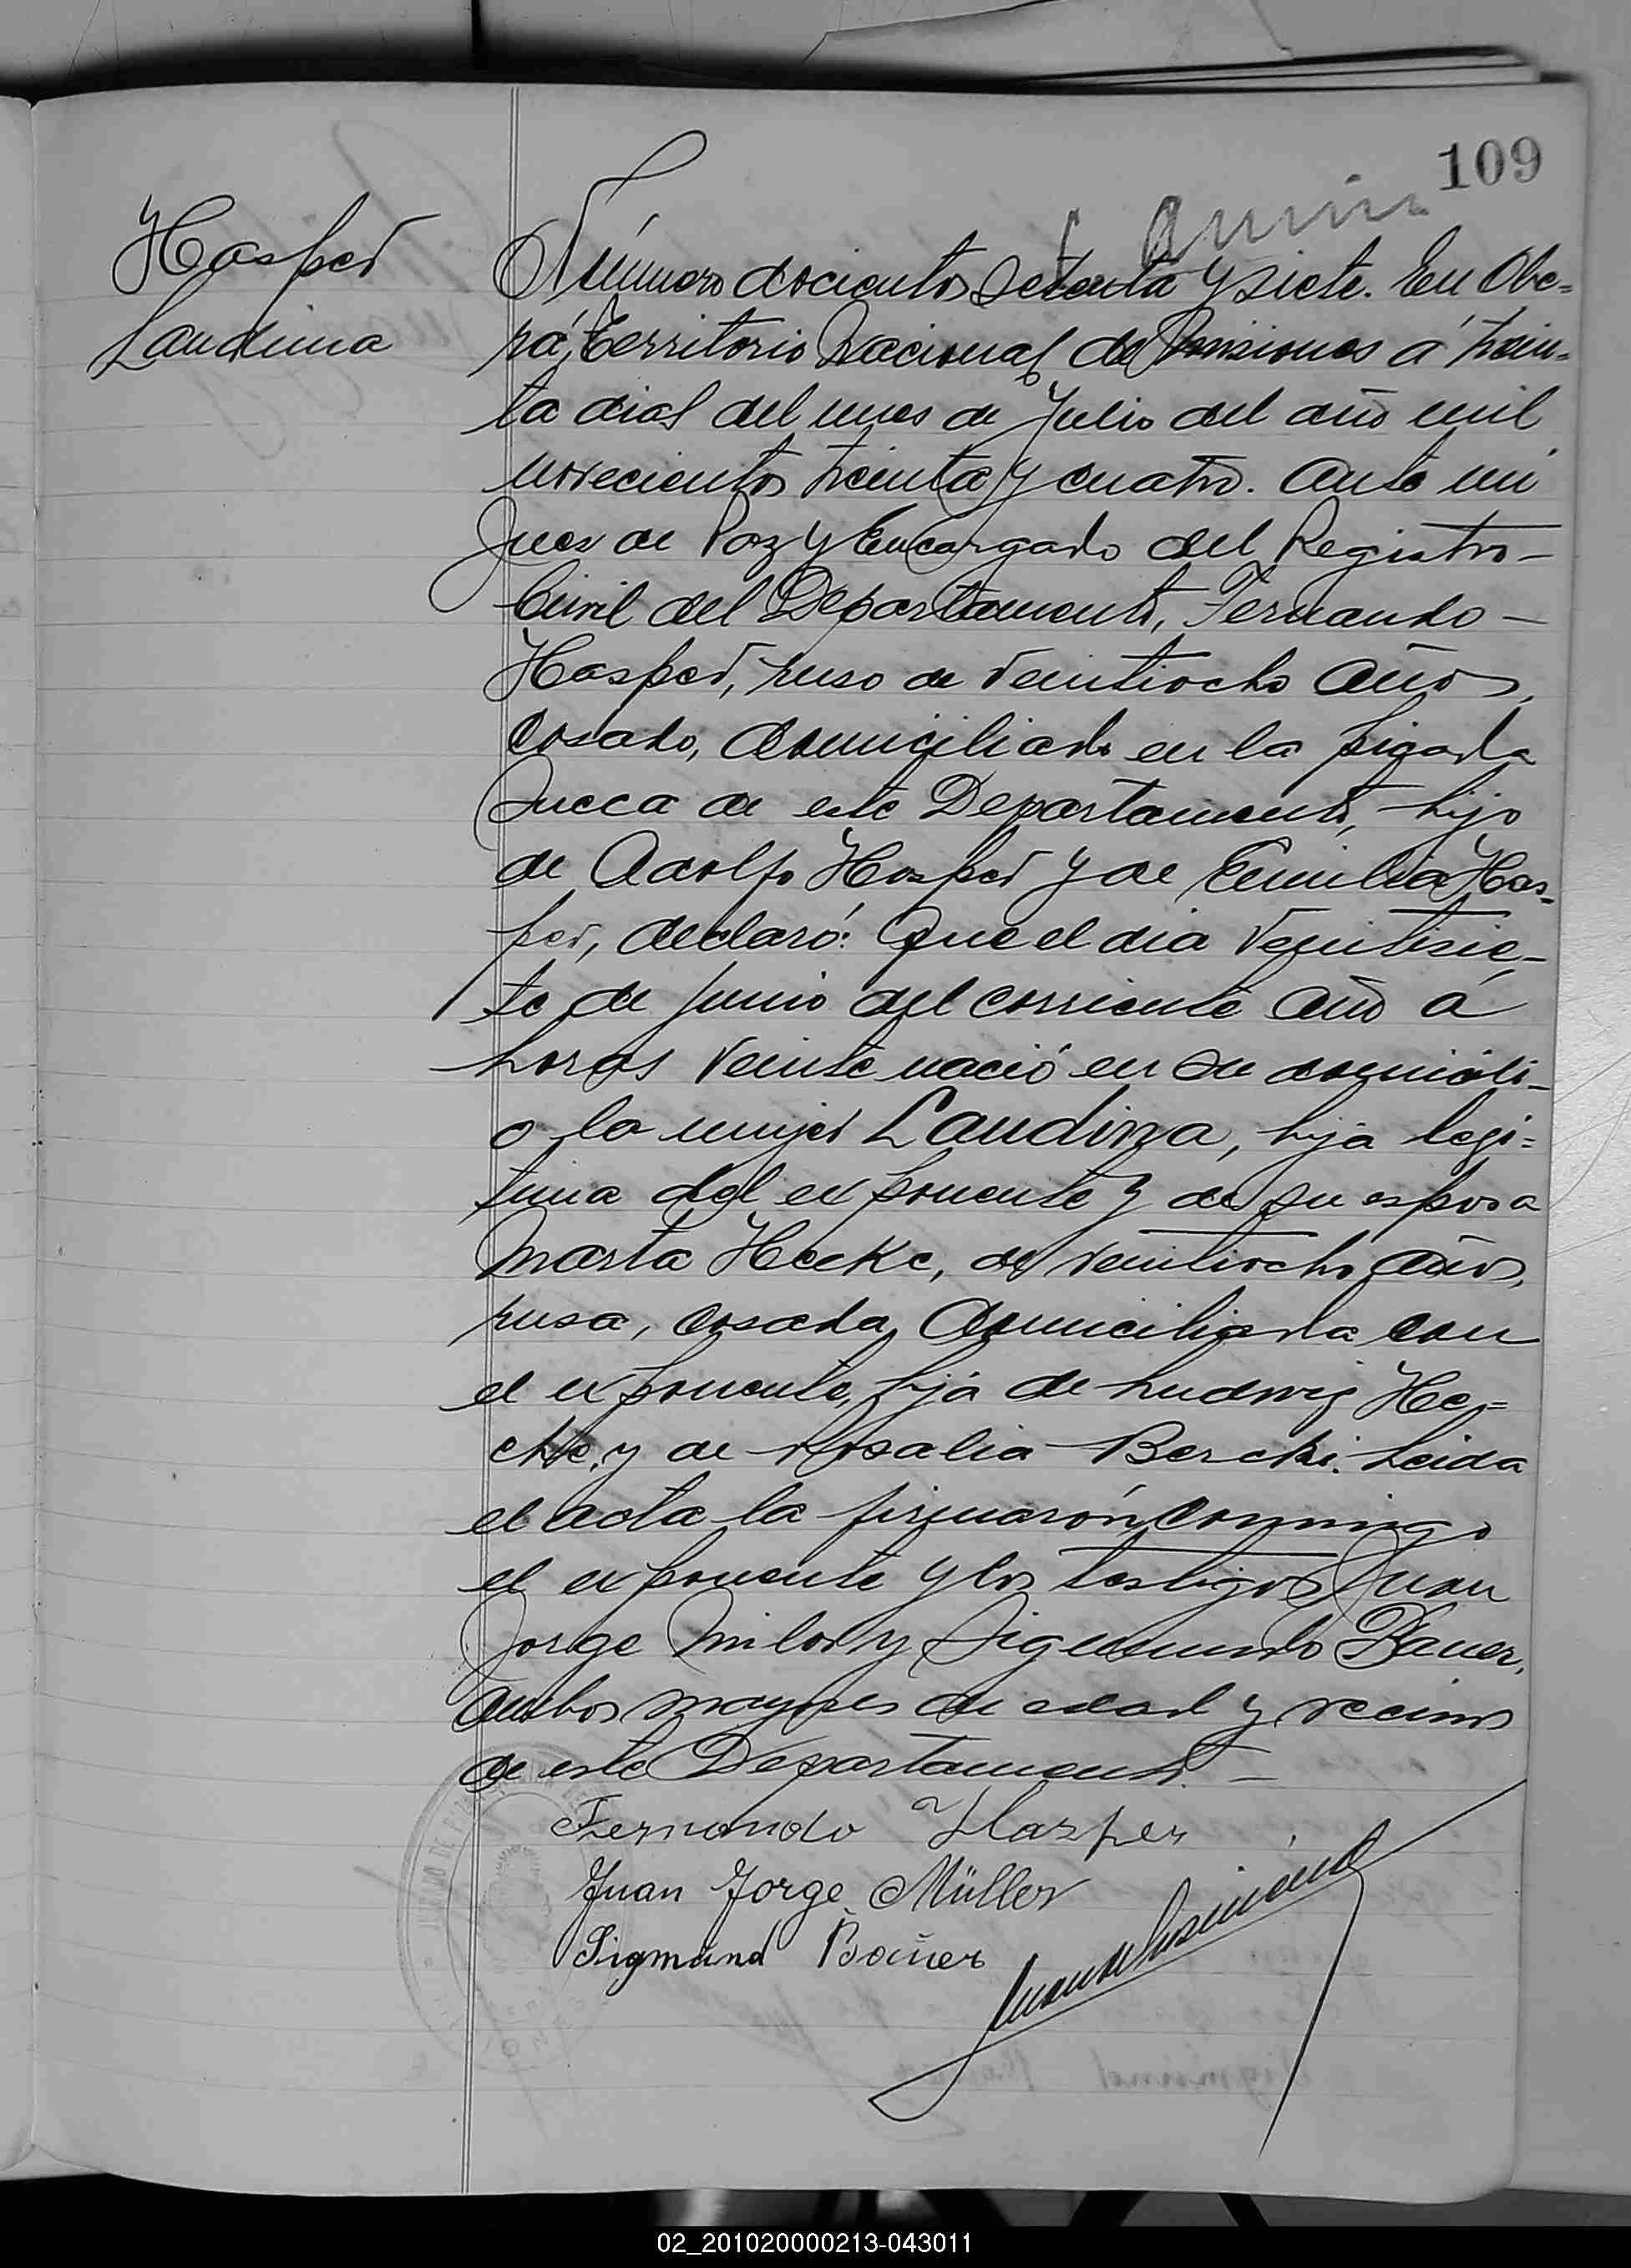 109
Hasper
Laudina
Número docientos setenta y siete. En Obe=
rá, Territorio Nacional de Misiones a trein=
ta dias del mes de Julio del año mil
novecientos treinta y cuatro. Ante mi
Juez de Paz y Encargado del Registro-
Civil del Departamento, Fernando -
Hasper, ruso de veintiocho años,
casado, domiciliado en la picada
Sueca de este Departamento, hijo
de Adolfo Hasper y de Emilia Has-
per, declaró: Que el dia veintisie-
te de junio del corriente año á
horas veinte nació en su domicili-
o la mujer Laudina, hija legi=
tima del exponente y de su esposa
Marta Hecke, de veintiocho años,
rusa, casada, domiciliada con
el exponente, hija de Ludwig He=
cke, y de Rosalia Berchi. Leida
el acta la firmarón conmigo
el exponente y los testigos Juan
Jorge Miler y Sigemundo Bauer,
ambos mayores de edad y vecinos
de este Departamento. -
Fernando Hasper
Juan Jorge Müller
Sigmund Bauer
02_201020000213-043011